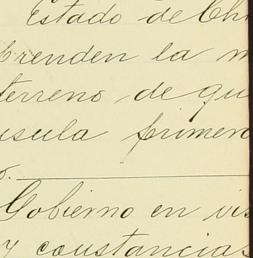 Estado de Chi
prenden la m
terreno de qu
usula primera
o.
Gobierno en vis
y constancias